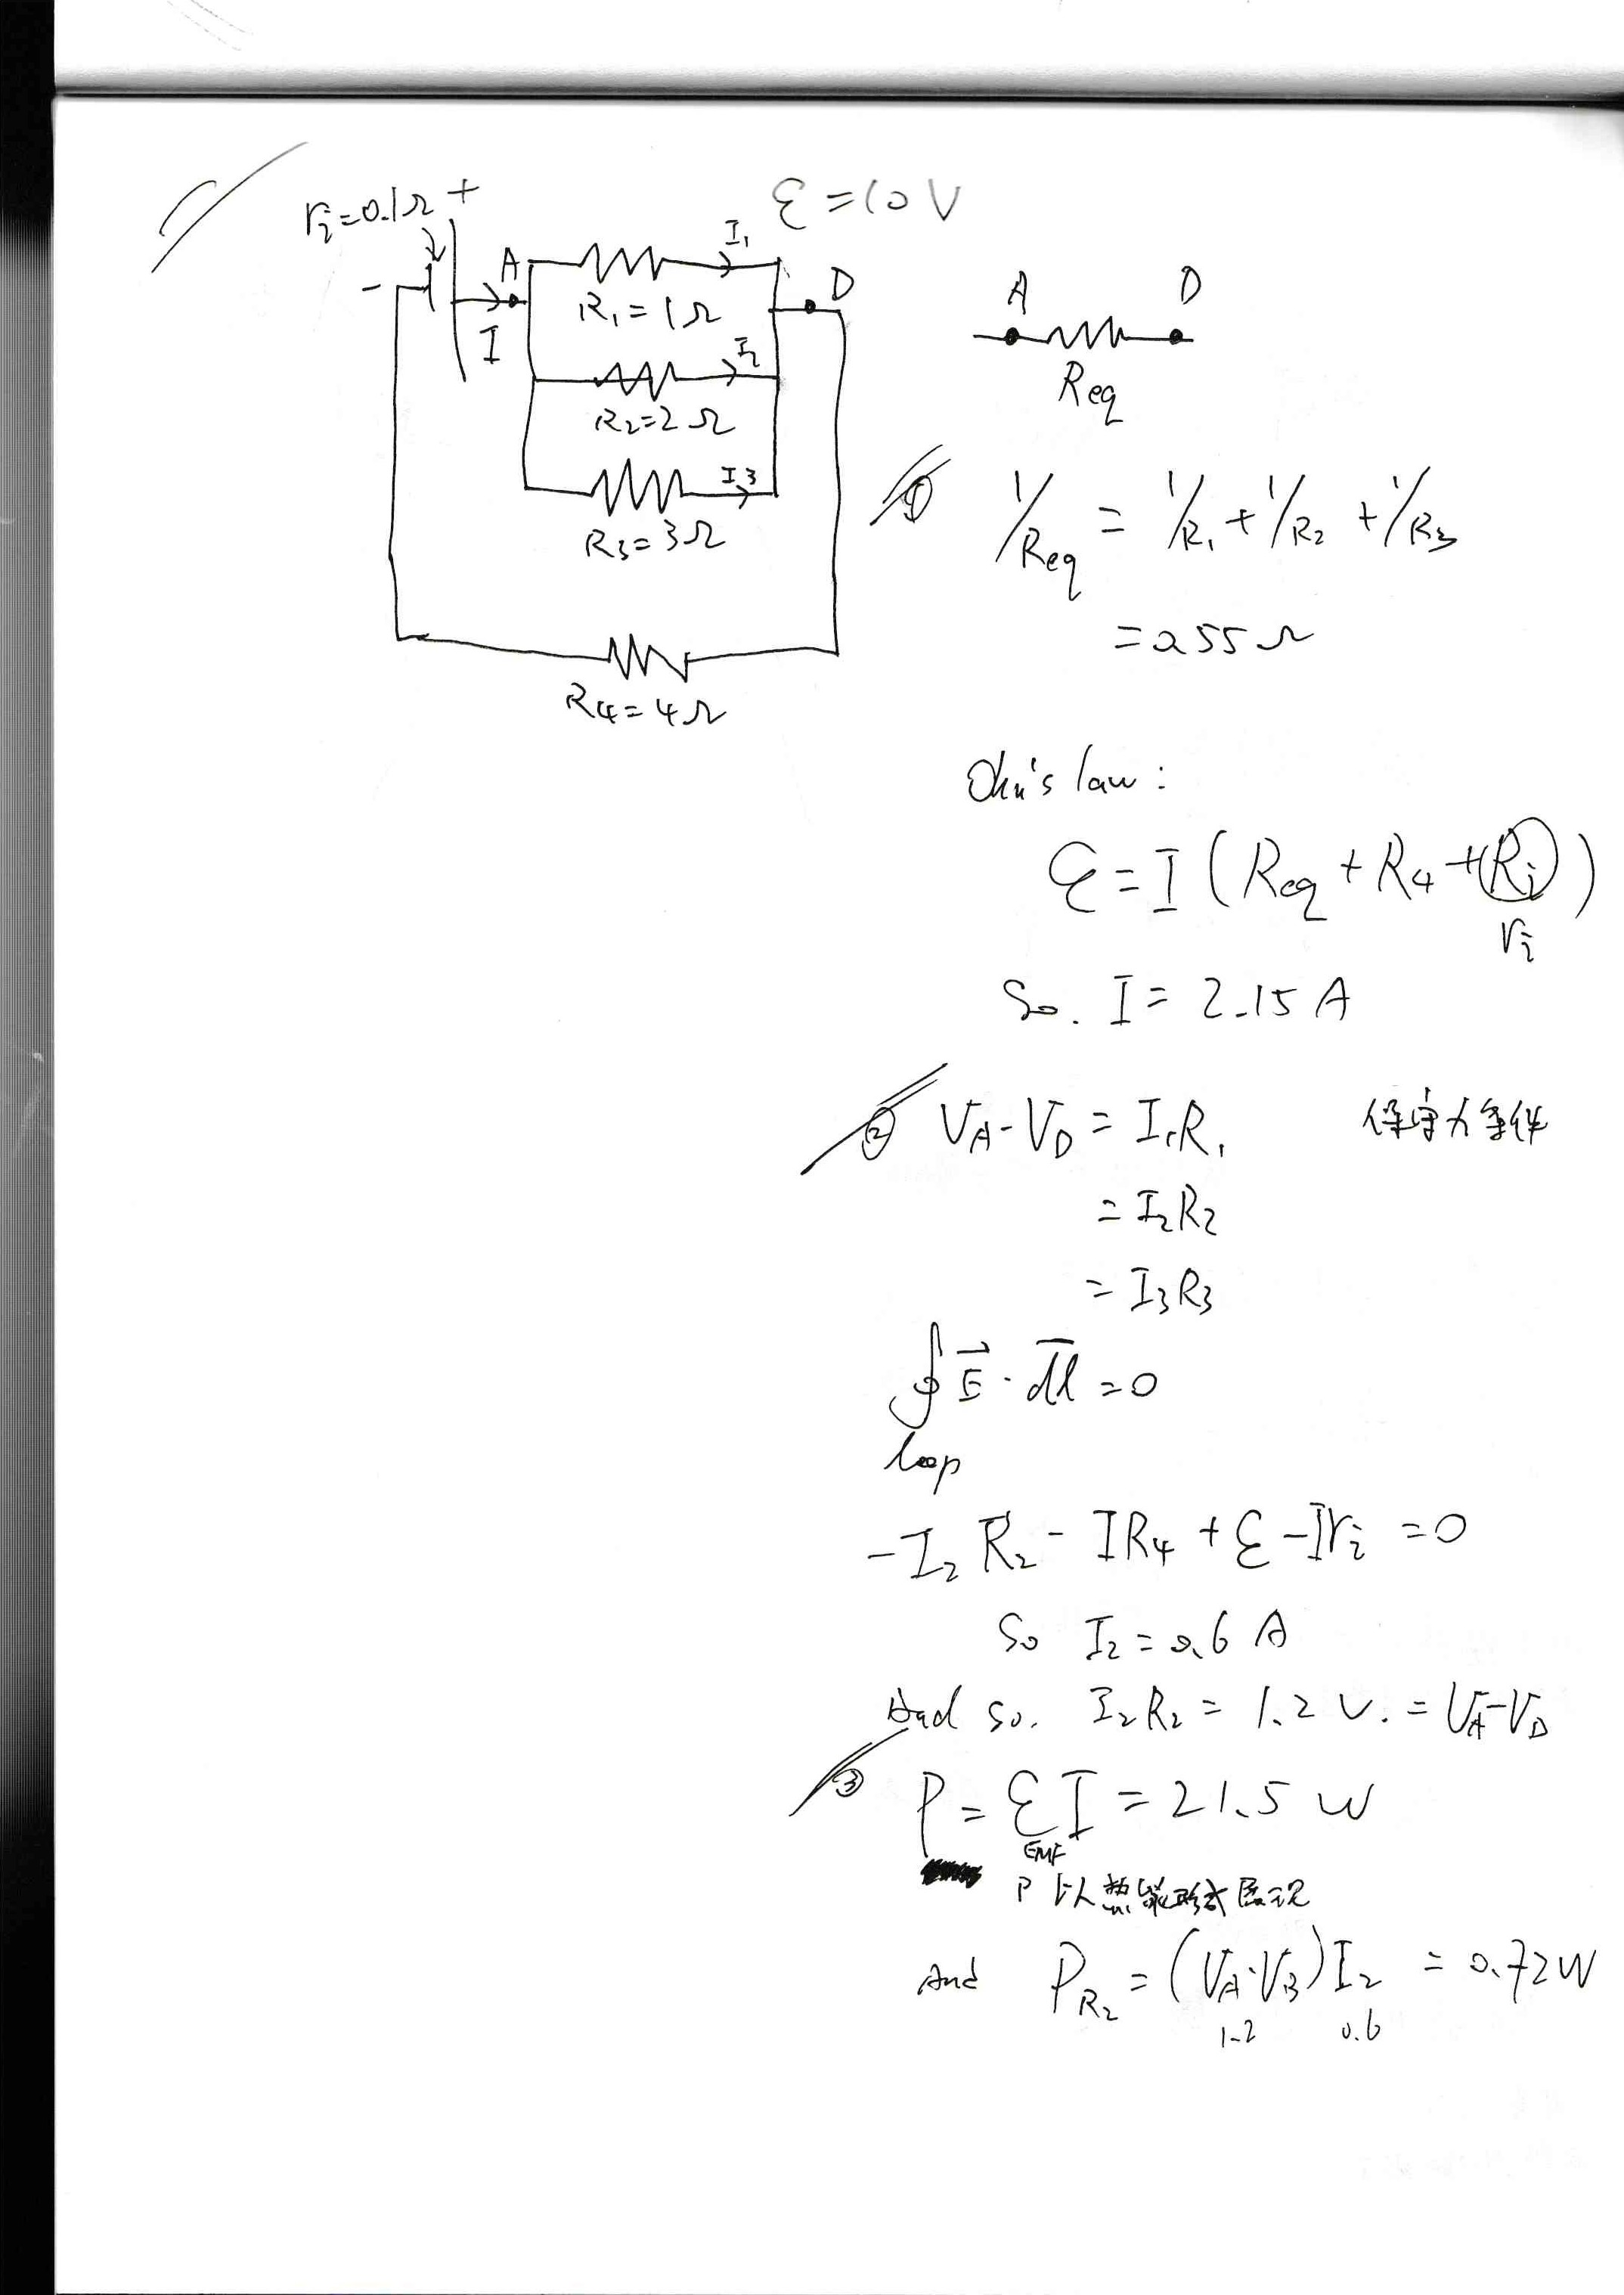 rᵢ=0.1Ω +
ε=10V
-
I
A
I₁
R₁=1Ω
D
I₂
R₂=2Ω
I3
R₃=3Ω
R₄=4Ω
A D
Req
① 1/Req = 1/R₁+1/R₂+1/R₃
=0.55Ω
Ohm's law:
ε=I(Req+R₄+Rᵢ)
rᵢ
So. I=2.15A
② V_A-V_D=I₁R₁ 保守力条件
=I₂R₂
=I₃R₃
∮E⃗·dl=0
loop
-I₂R₂-IR₄+ε-Irᵢ=0
So I₂=0.6A
And so. I₂R₂=1.2V.=V_A-V_D
③ P=εI=21.5W
EMF
P以热能形式展现
And P_R₂=(V_A-V_B)I₂=0.72W
1.2 0.6